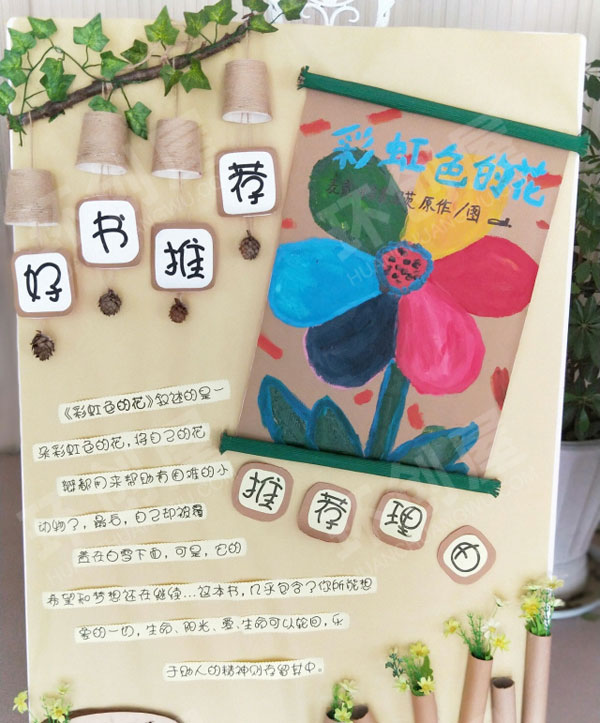 好书推荐
彩虹色的花
原作/图
推荐理由
《彩虹色的花》叙述的是一
朵彩虹色的花,将自己的花
瓣都用来帮助有困难的小
动物了,最后,自己却被覆
盖在白雪下面,可是,它的
希望和梦想还在继续…这本书,几乎包含了你所能想
象的一切,生命、阳光、爱、生命可以轮回,乐
于助人的精神则存留其中。